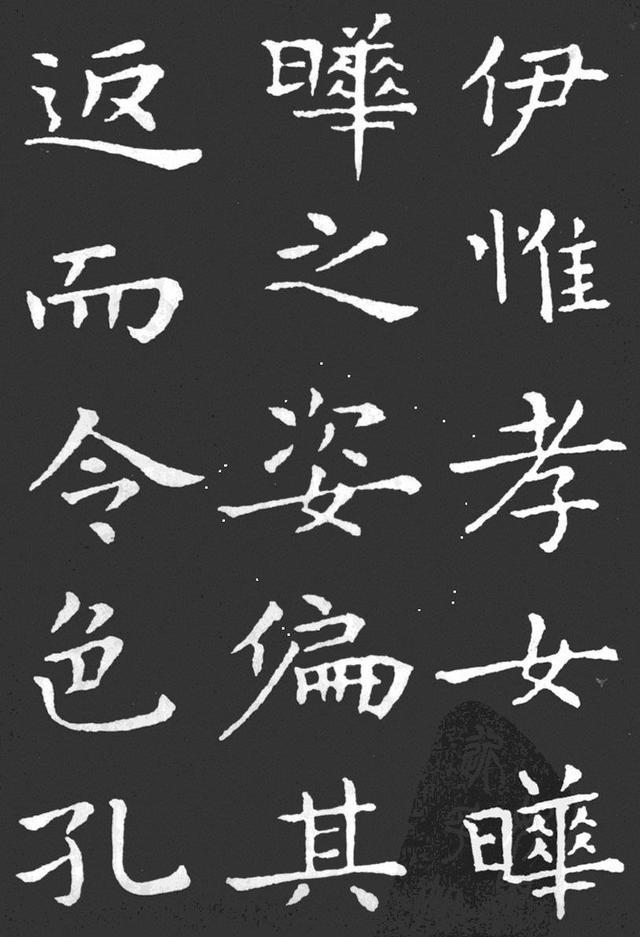 伊惟孝女曅
曅之姿偏其
返而令色孔